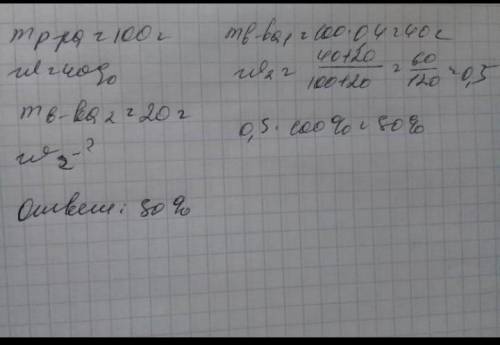 mр-ра = 100г
w = 40%
mв-ва2 = 20г
w2 - ?
Ответ: 50%
mв-ва1 = 100 · 0,4 = 40г
w2 = 40+20 / 100+20 = 60 / 120 = 0,5
0,5 · 100% = 50%